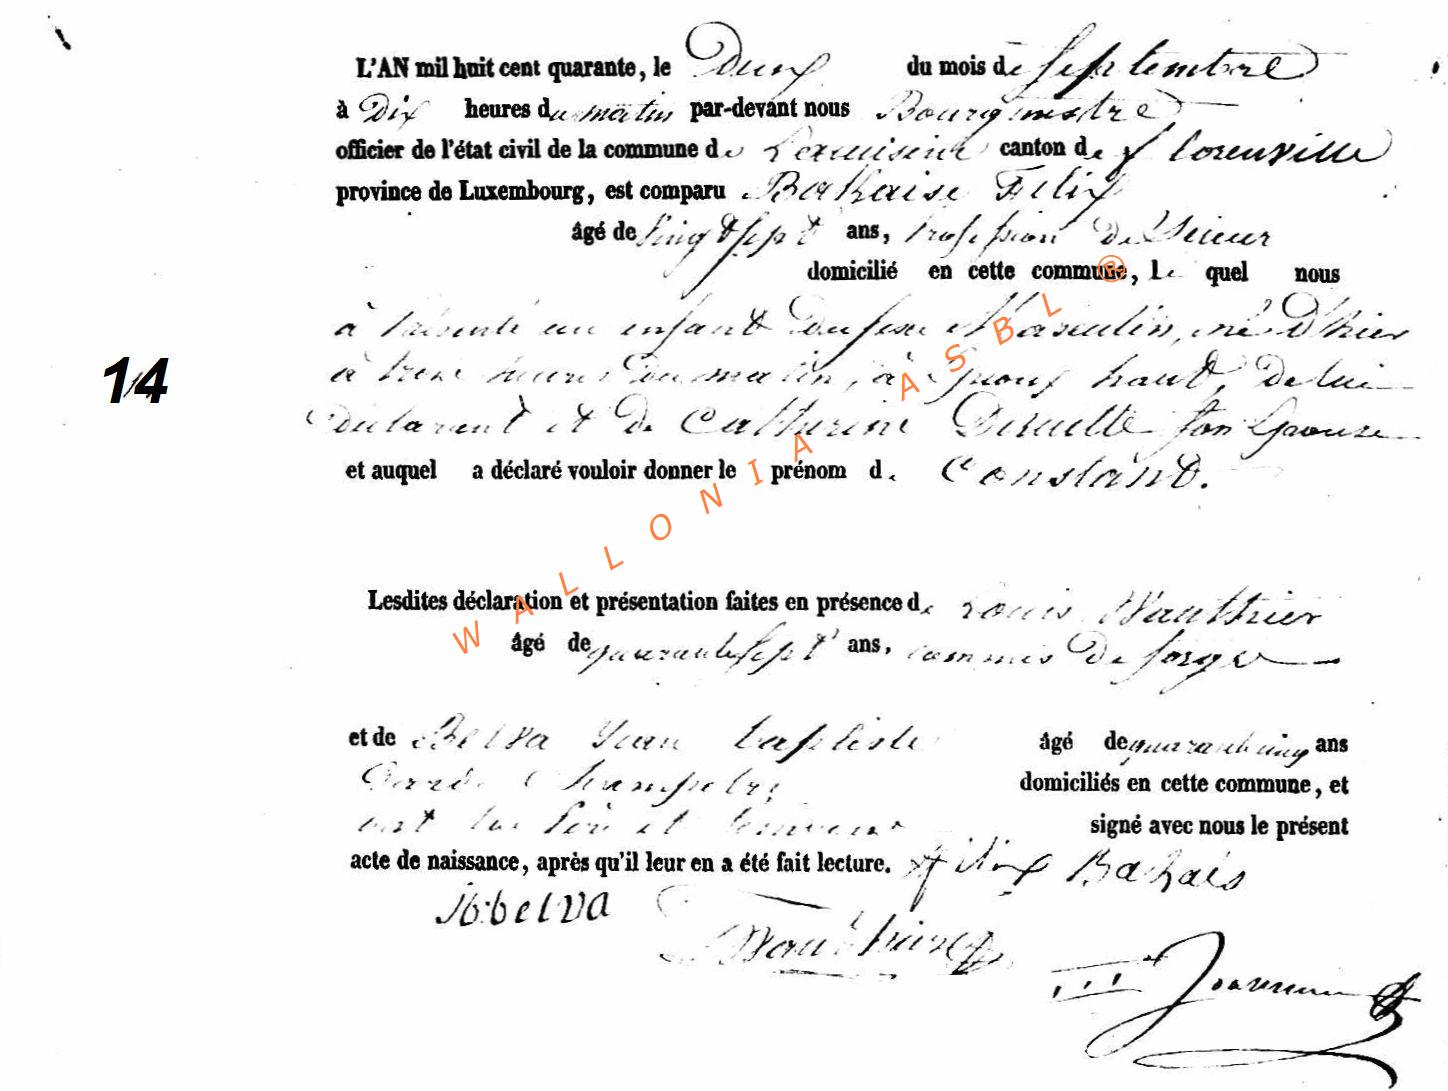 L'AN mil huit cent quarante, le Deux du mois de Septembre
à Dix heures du matin par-devant nous Bourgmestre
officier de l'état civil de la commune de canton de florenville
province de Luxembourg, est comparu Bahaise Felix
âgé de vingt sept ans, profession De
domicilié en cette commune, le quel nous
à présenté un enfant Du sexe Masculin, né D'hier
à heures Du matin, à haut, De lui
Déclarant et De Catherine son Epouse
14
et auquel a déclaré vouloir donner le prénom de Constant.
Lesdites déclaration et présentation faites en présence de Louis Wauthier
âgé de quarante sept ans, commis De forge
et de Belva Jean baptiste âgé de quarante cinq ans
Garde Champetre domiciliés en cette commune, et
ont les Père et temoins signé avec nous le présent
acte de naissance, après qu'il leur en a été fait lecture. Bahais
Jb:belva
Wauthier
WALLONIA ASBL ®